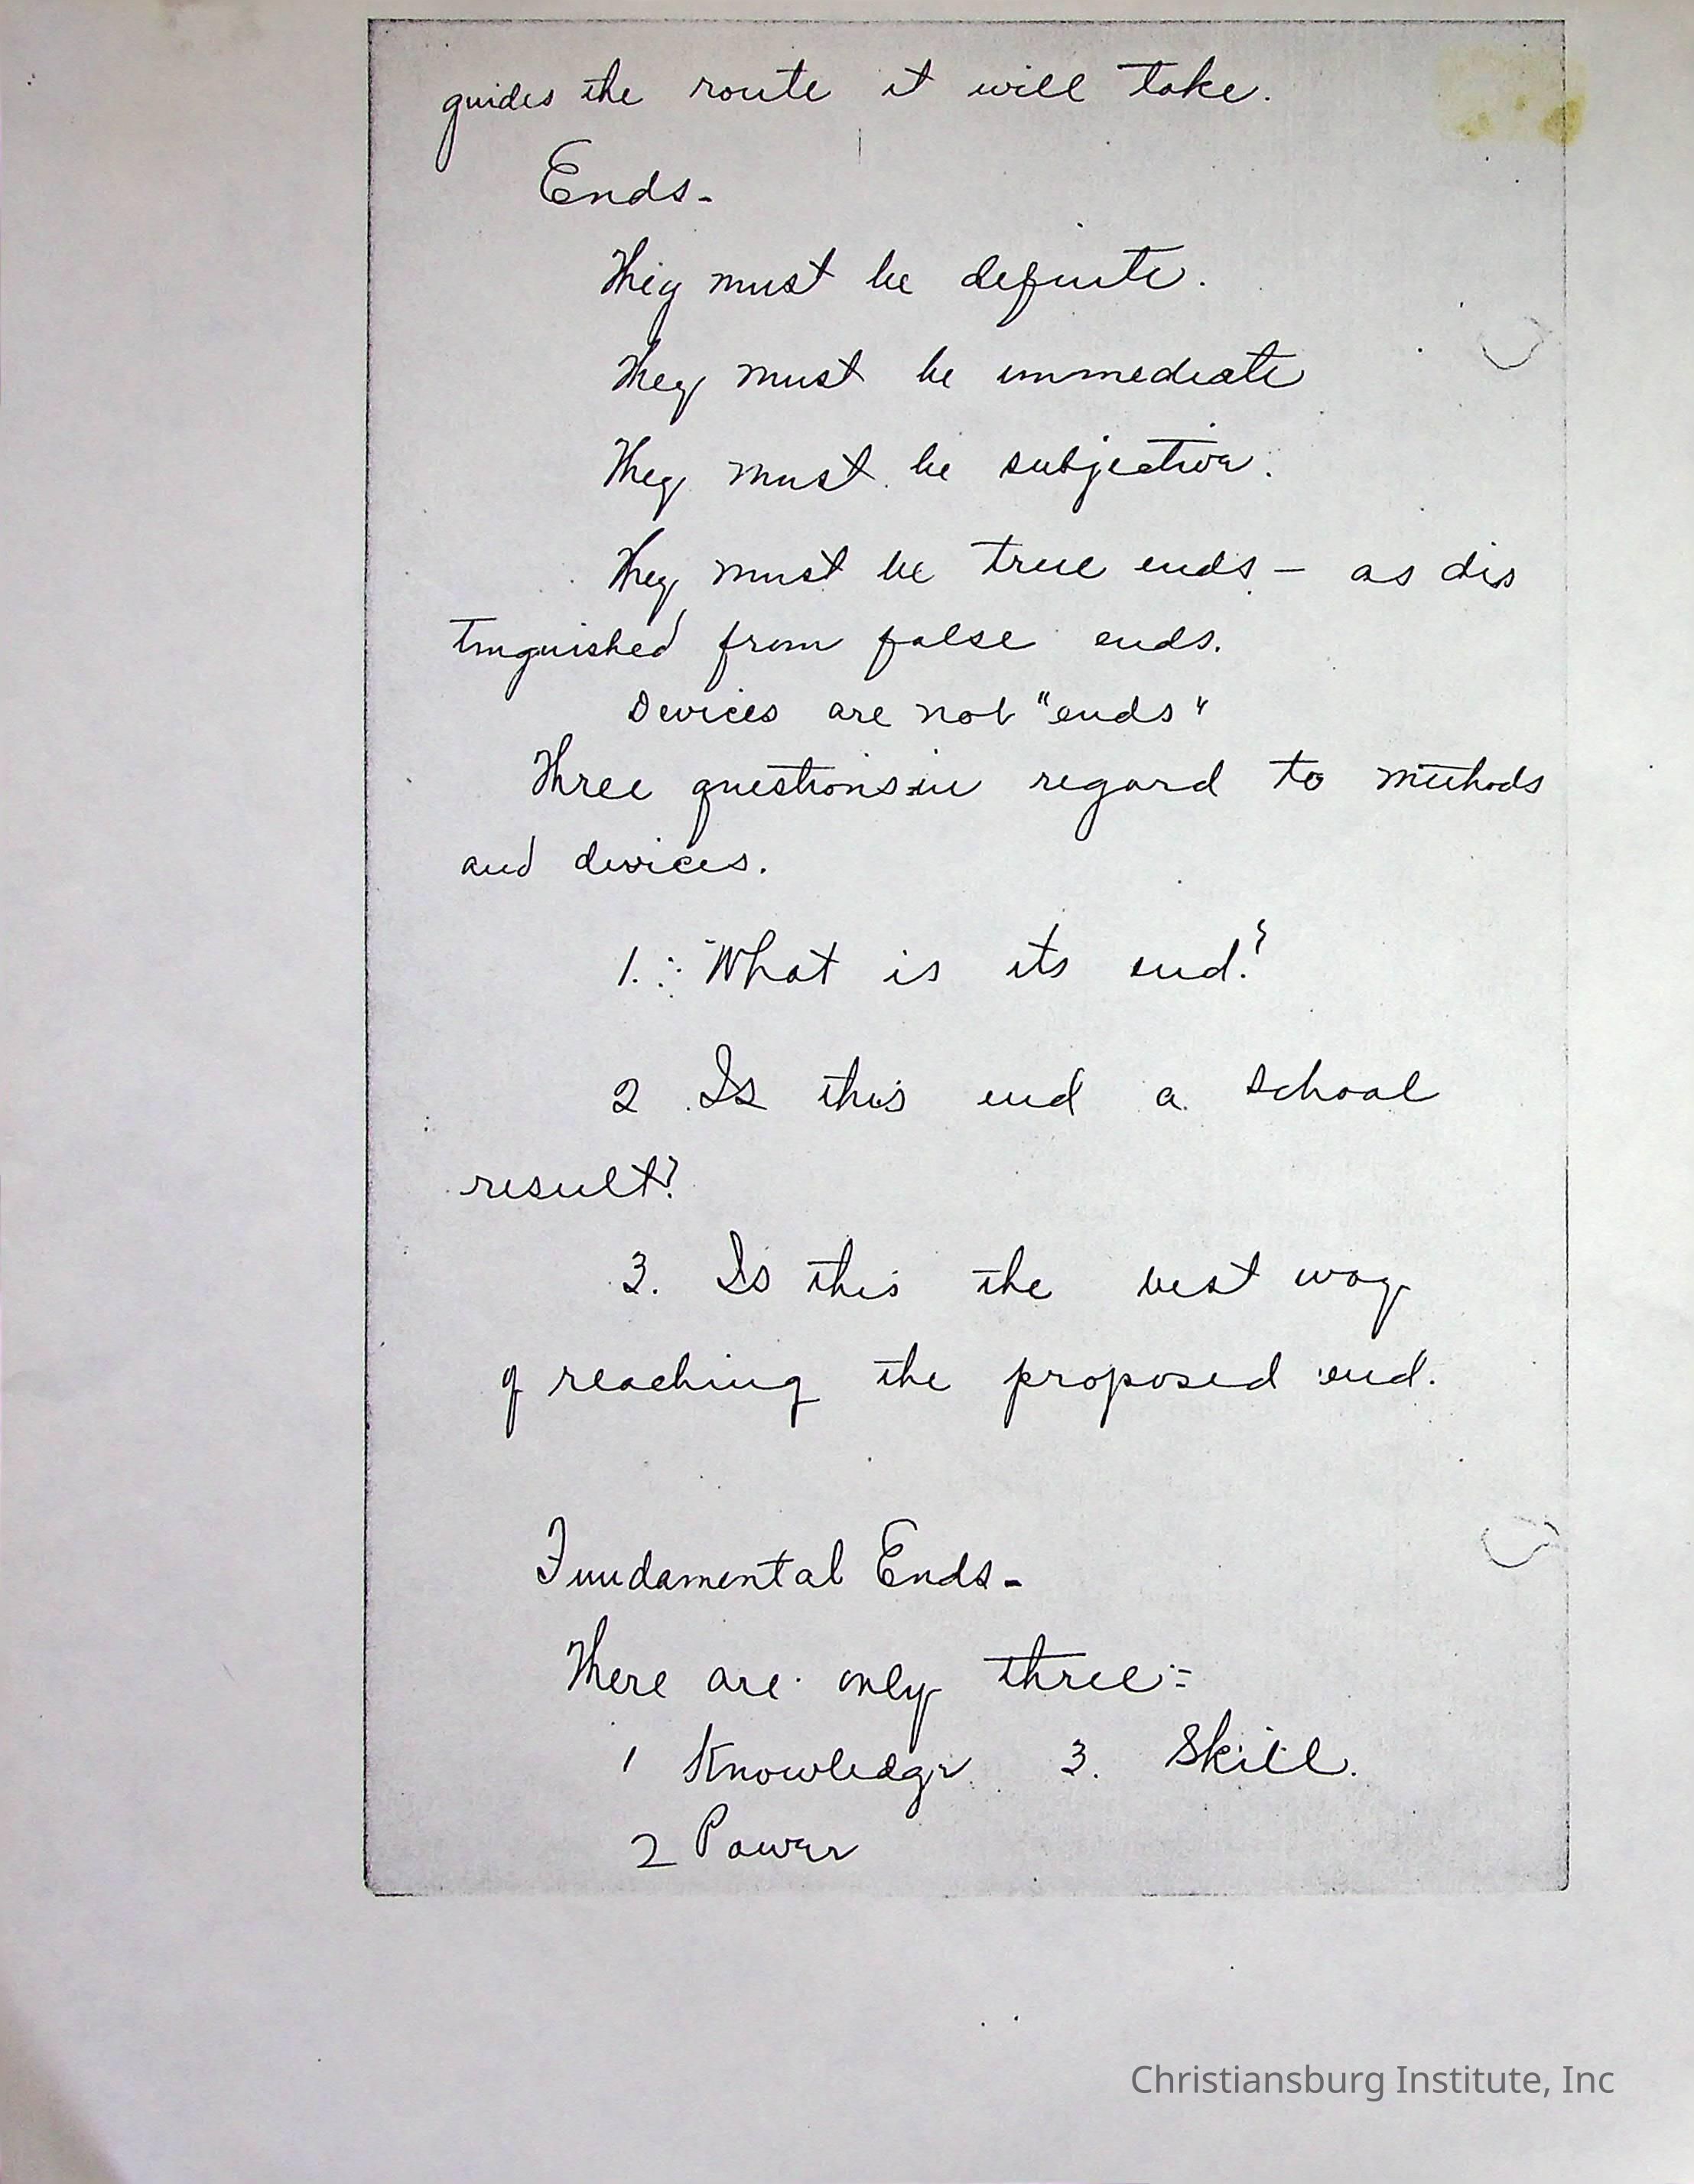 guides the route it will take.
Ends-
They must be definite.
They must be immediate
They must be subjective.
They must be true ends — as dis
tinguished from false ends.
Devices are not "ends"
Three questions in regard to methods
and devices.
1. What is its end?
2 Is this end a school
result?
3. Is this the best way
of reaching the proposed end.
Fundamental Ends-
There are only three:-
1 Knowledge 3. Skill.
2 Power
Christiansburg Institute, Inc